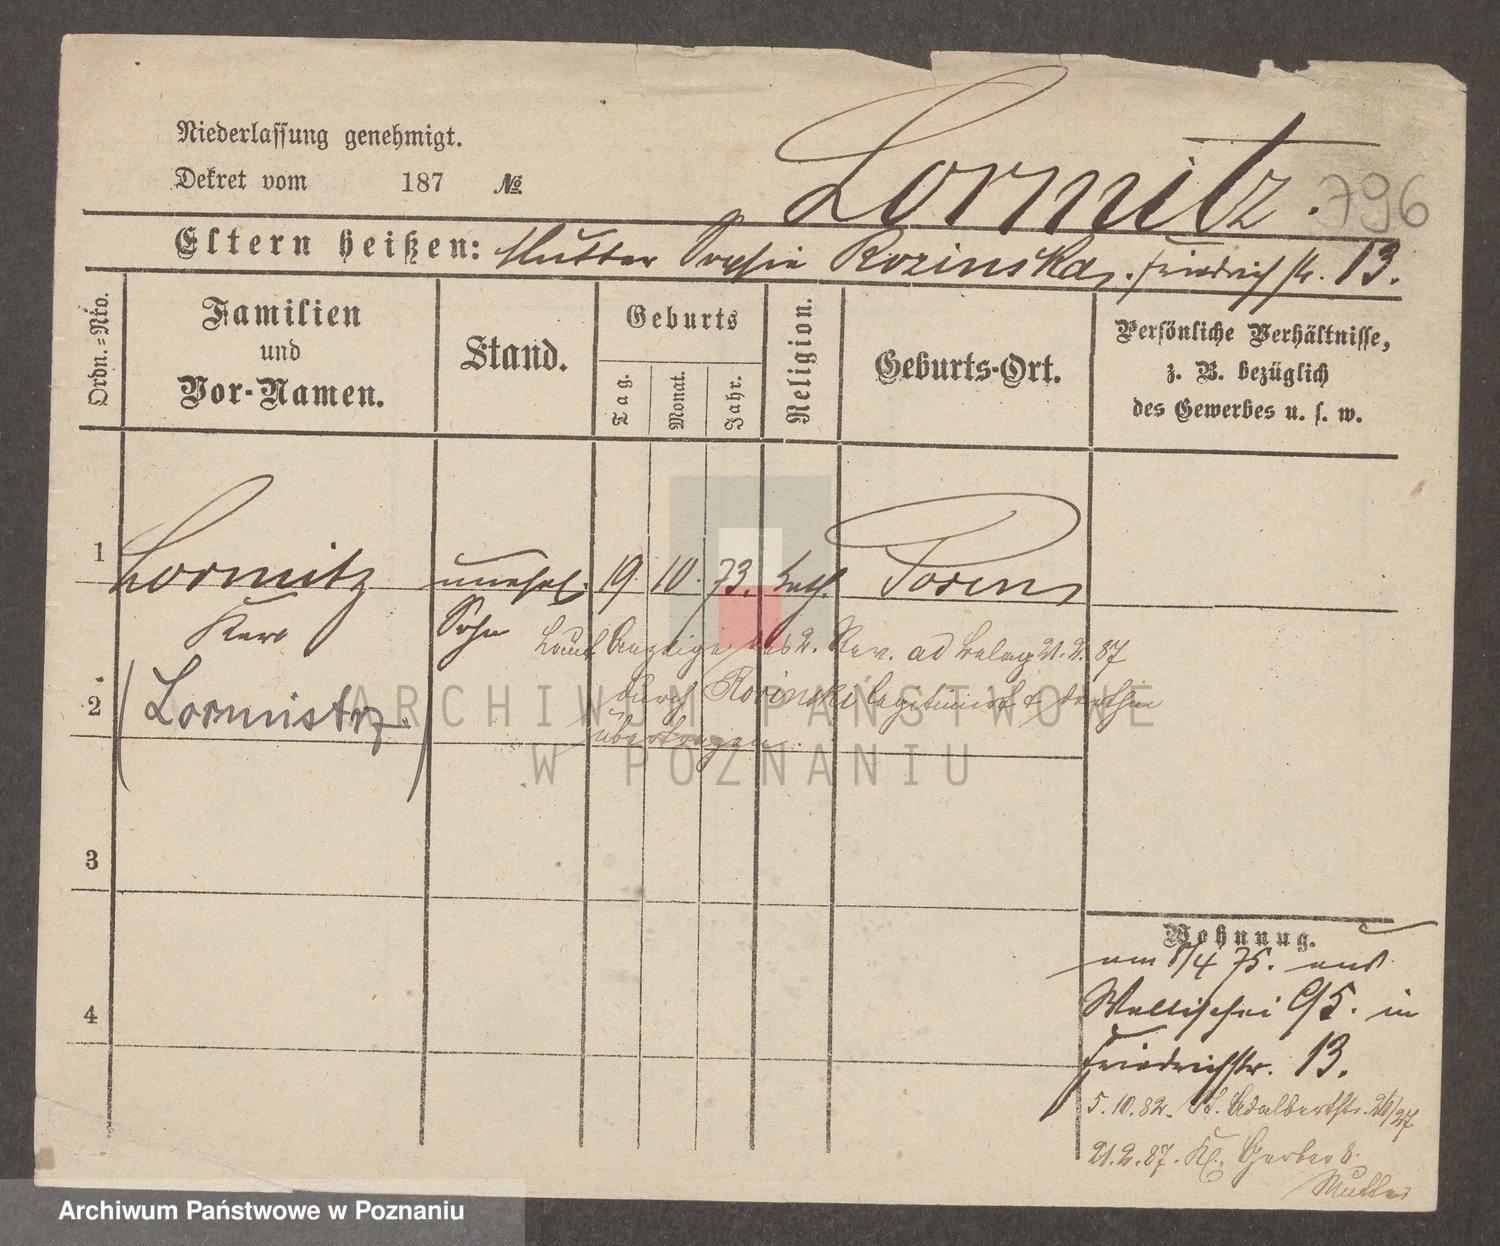 Niederlassung genehmigt.
Dekret vom 187 №
Lormitz. 796
Eltern heißen: Mutter Sophie Rozinska, Friedrichstr. 13.
Ordn.=Nro.
Familien
und
Vor-Namen.
Stand.
Geburts
Tag.
Monat.
Jahr.
Religion.
Geburts-Ort.
Persönliche Verhältnisse,
z. B. bezüglich
des Gewerbes u. s. w.
1 Lormitz unehel. 19. 10. 73. kath. Posen
Sohn
Laut Anzeige des 2. Rev. ad Belag 21.2.87
2 (Lormistrz.) durch Rosinski legitimirt & dorthin
übertragen.
3
4
Wohnung.
am 8/4 75. aus
Wallischei 95. in
Friedrichstr. 13.
5.10.82. Adalbertstr. 26/27
21.2.87. Kl. Gerber 8.
Mutter
ARCHIWUM PAŃSTWOWE
W POZNANIU
Archiwum Państwowe w Poznaniu